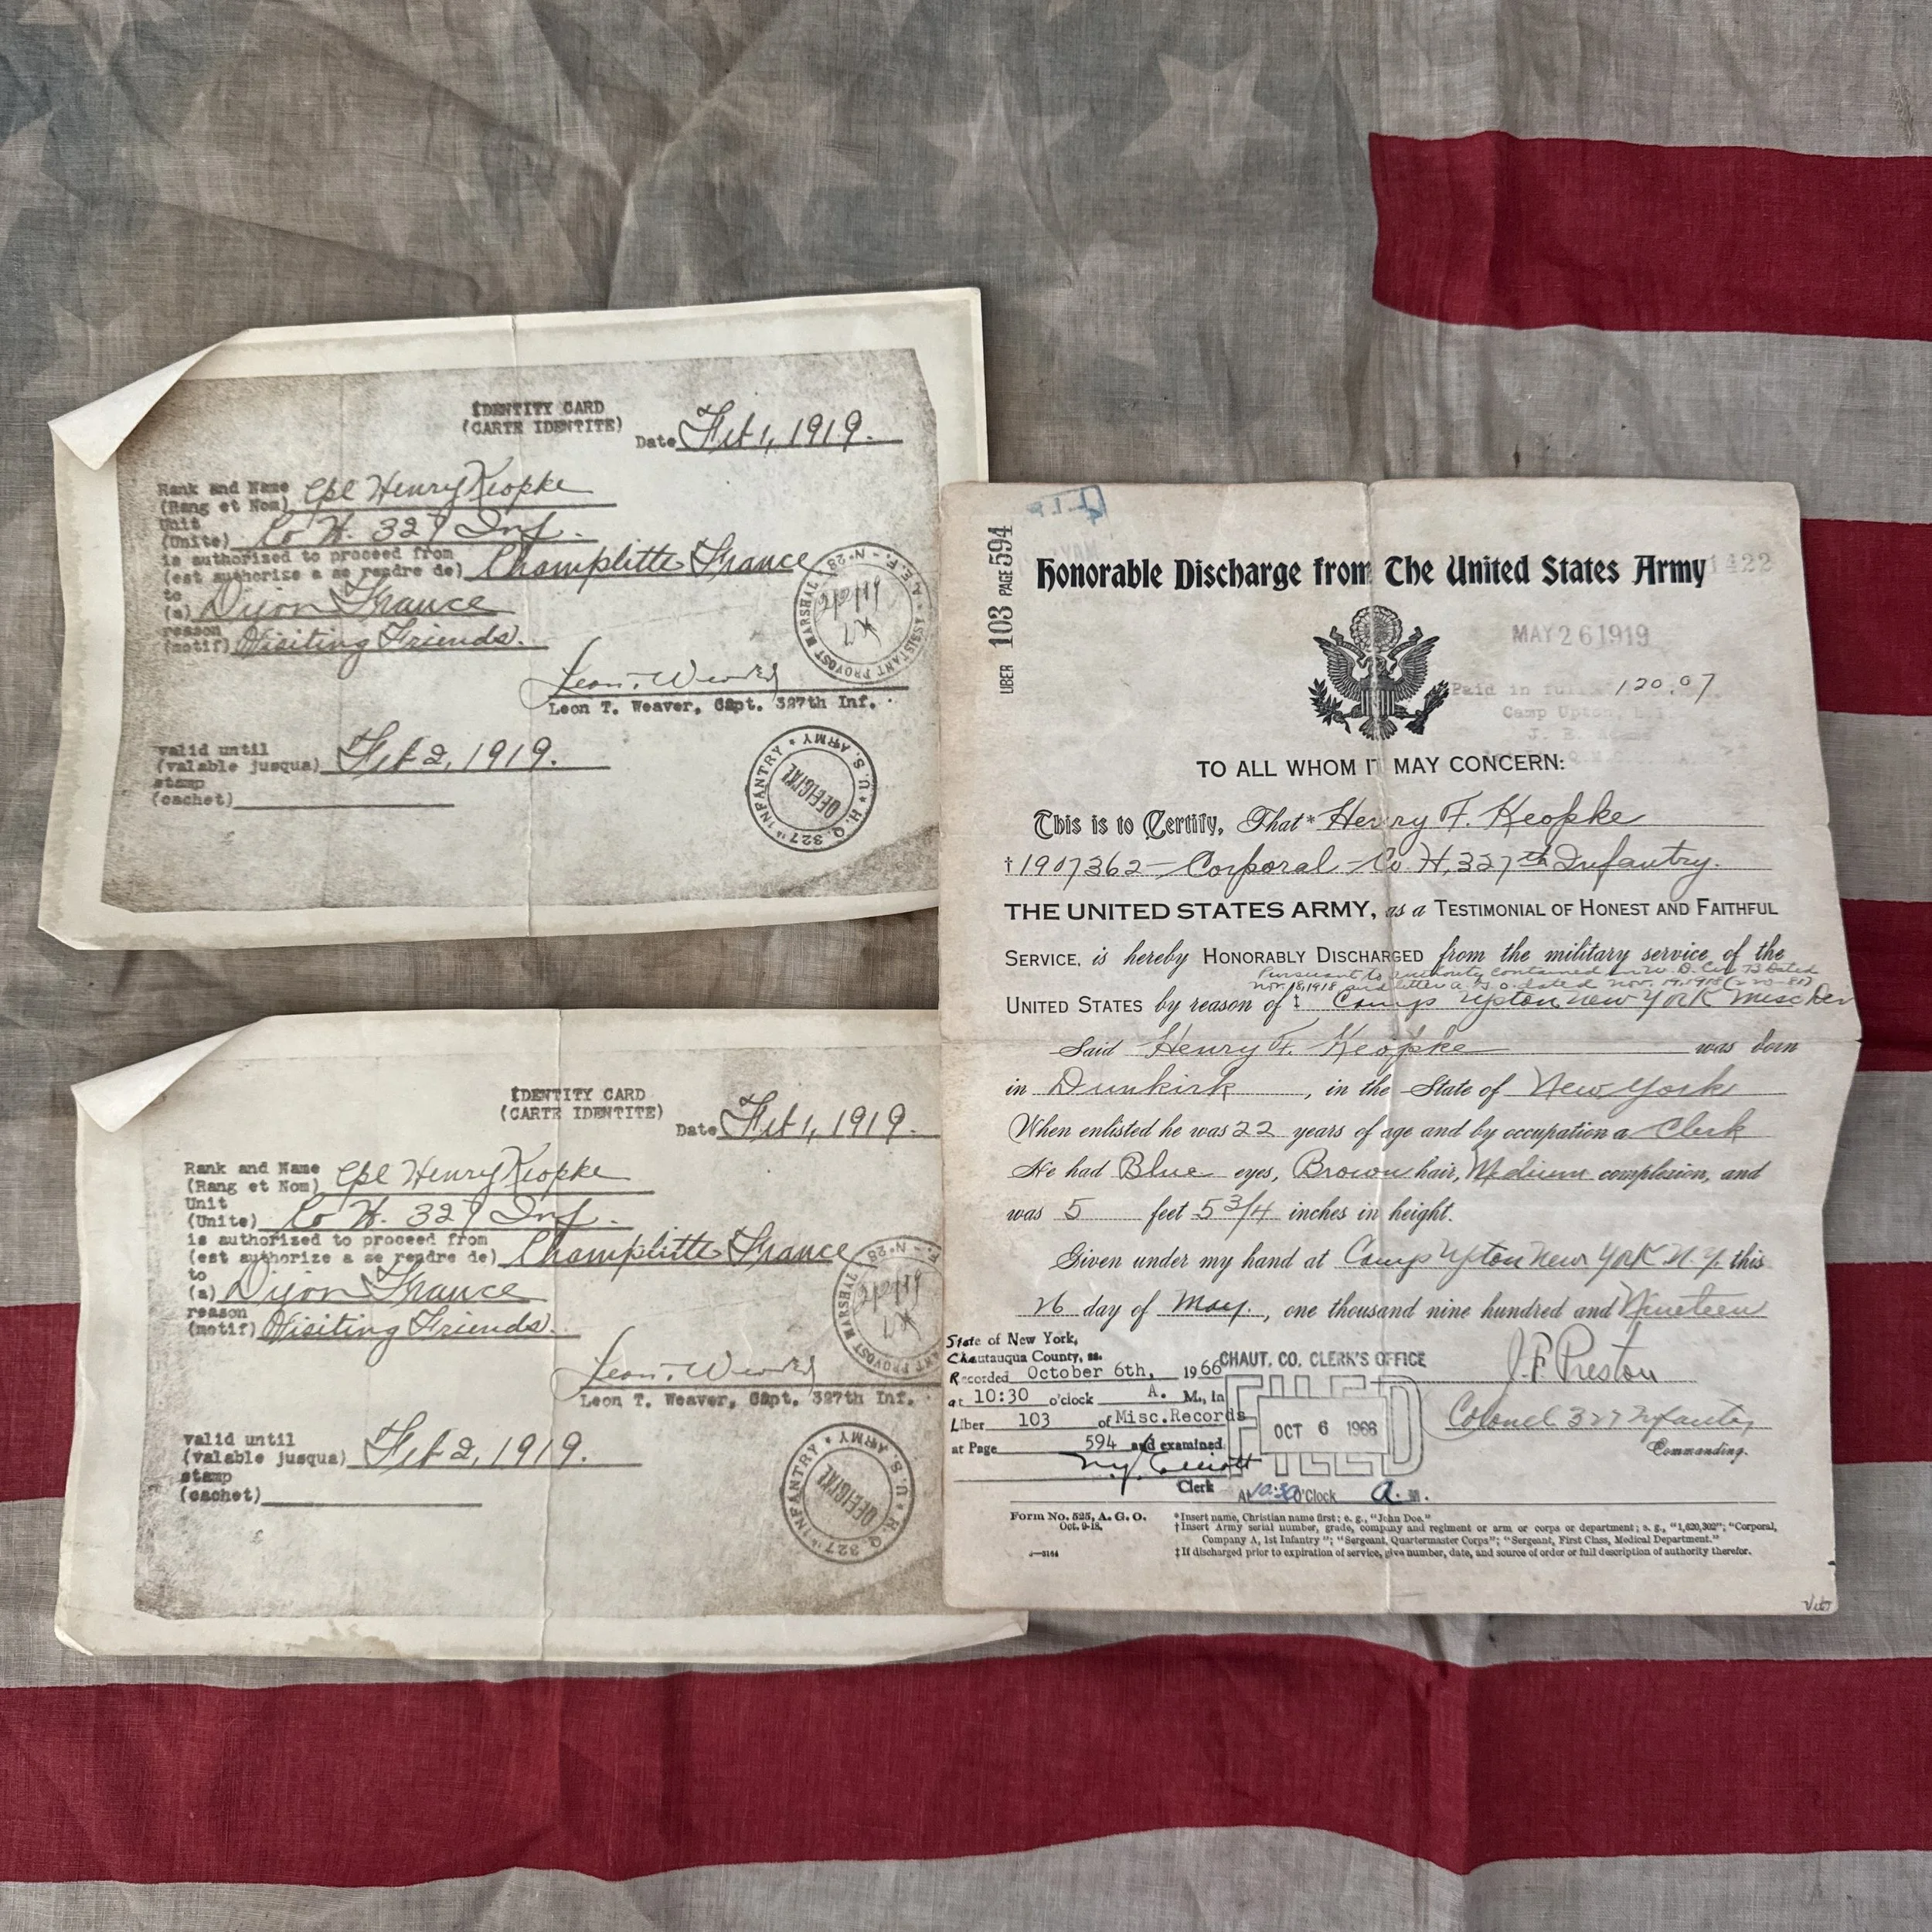 IDENTITY CARD
(CARTE IDENTITE)
Date Feb 1, 1919.
Rank and Name Cpl Henry Keopke
(Rang et Nom)
Unit
(Unite) Co H. 327 Inf.
is authorized to proceed from
(est authorize a se rendre de) Champlitte France
to
(a) Dijon France
reason
(motif) Visiting Friends.
ASSISTANT PROVOST MARSHAL * A.E.F. - No 28
2/2/19
Leon T. Weaver, Capt. 327th Inf.
valid until
(valable jusqua) Feb 2, 1919.
stamp
(cachet)
H.Q. 327th INFANTRY * U.S. ARMY *
OFFICIAL
IDENTITY CARD
(CARTE IDENTITE)
Date Feb 1, 1919.
Rank and Name Cpl Henry Keopke
(Rang et Nom)
Unit
(Unite) Co H. 327 Inf.
is authorized to proceed from
(est authorize a se rendre de) Champlitte France
to
(a) Dijon France
reason
(motif) Visiting Friends.
ANT PROVOST MARSHAL F. - No 28
2/2/19
Leon T. Weaver, Capt. 327th Inf.
valid until
(valable jusqua) Feb 2, 1919.
stamp
(cachet)
H.Q. 327th INFANTRY * U.S. ARMY *
OFFICIAL
LIBER 103 PAGE 594
Honorable Discharge from The United States Army
1422
MAY 26 1919
Paid in full 120.07
Camp Upton,
TO ALL WHOM IT MAY CONCERN:
This is to Certify, That* Henry F. Keopke
†1907362 - Corporal - Co H, 327th Infantry.
THE UNITED STATES ARMY, as a TESTIMONIAL OF HONEST AND FAITHFUL
SERVICE, is hereby HONORABLY DISCHARGED from the military service of the
Pursuant to authority contained in W. D. Cir 73 Dated
Nov. 18, 1918 and letter A. G. O. dated Nov. 19, 1918
UNITED STATES by reason of ‡ Camp Upton New York
Said Henry F. Keopke was born
in Dunkirk, in the State of New York
When enlisted he was 22 years of age and by occupation a Clerk
He had Blue eyes, Brown hair, Medium complexion, and
was 5 feet 5 3/4 inches in height.
Given under my hand at Camp Upton New York N.Y. this
26 day of May, one thousand nine hundred and Nineteen
J. F. Preston
Colonel 327 Infantry
Commanding.
State of New York,
Chautauqua County, ss.
Recorded October 6th, 1966
at 10:30 o'clock A. M., in
Liber 103 of Misc. Records
at Page 594 and examined
Clerk
CHAUT. CO. CLERK'S OFFICE
FILED
OCT 6 1966
At 10:30 O'Clock A. M.
Form No. 525, A. G. O.
Oct. 9-18.
*Insert name, Christian name first; e. g., "John Doe."
†Insert Army serial number, grade, company and regiment or arm or corps or department; e. g., "1,620,302"; "Corporal,
Company A, 1st Infantry"; "Sergeant, Quartermaster Corps"; "Sergeant, First Class, Medical Department."
‡If discharged prior to expiration of service, give number, date, and source of order or full description of authority therefor.